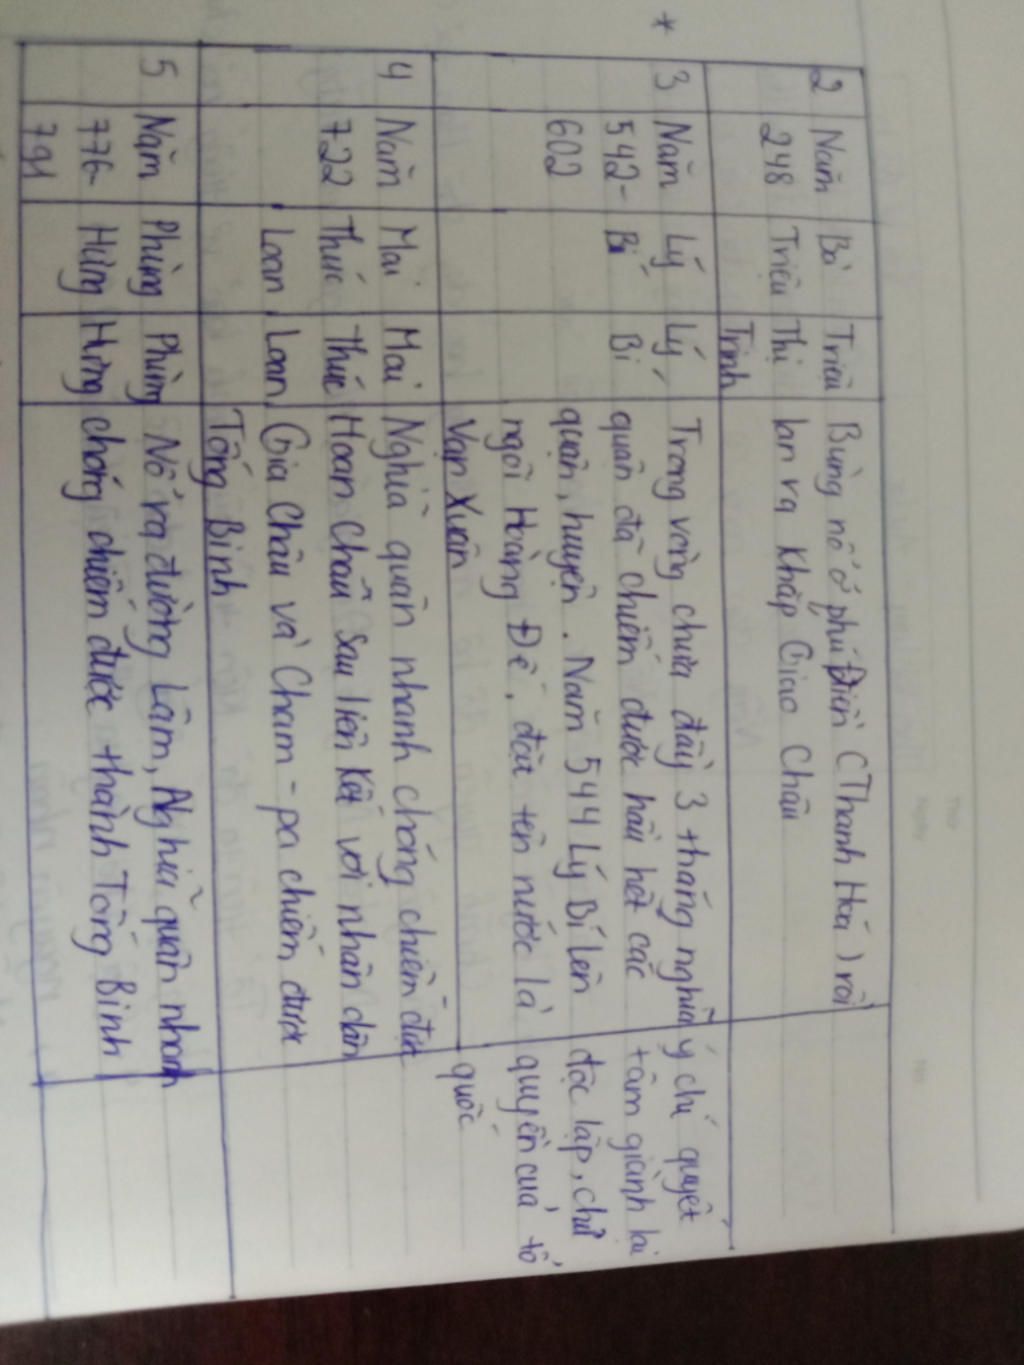 *
2 Năm Bà Triệu Bùng nổ ở phú Điền (Thanh Hoá) rồi
248 Triệu Thị lan ra khắp Giao Châu
Trinh
3 Năm Lý Lý Trong vòng chưa đầy 3 tháng nghĩa ý chí quyết
542- Bí Bí quân đã chiếm được hầu hết các tâm giành lại
602 quận, huyện. Năm 544 Lý Bí lên độc lập, chủ
ngôi Hoàng Đế, đặt tên nước là quyền của tổ
Vạn Xuân quốc
4 Năm Mai Mai Nghĩa quân nhanh chóng chiếm được
722 Thúc Thúc Hoan Châu sau liên kết với nhân dân
Loan Loan Gia Châu và Cham-pa chiếm được
Tống Bình
5 Năm Phùng Phùng Nổ ra đường Lâm, Nghĩa quân nhanh
776- Hưng Hưng chóng chiếm được thành Tống Bình
791